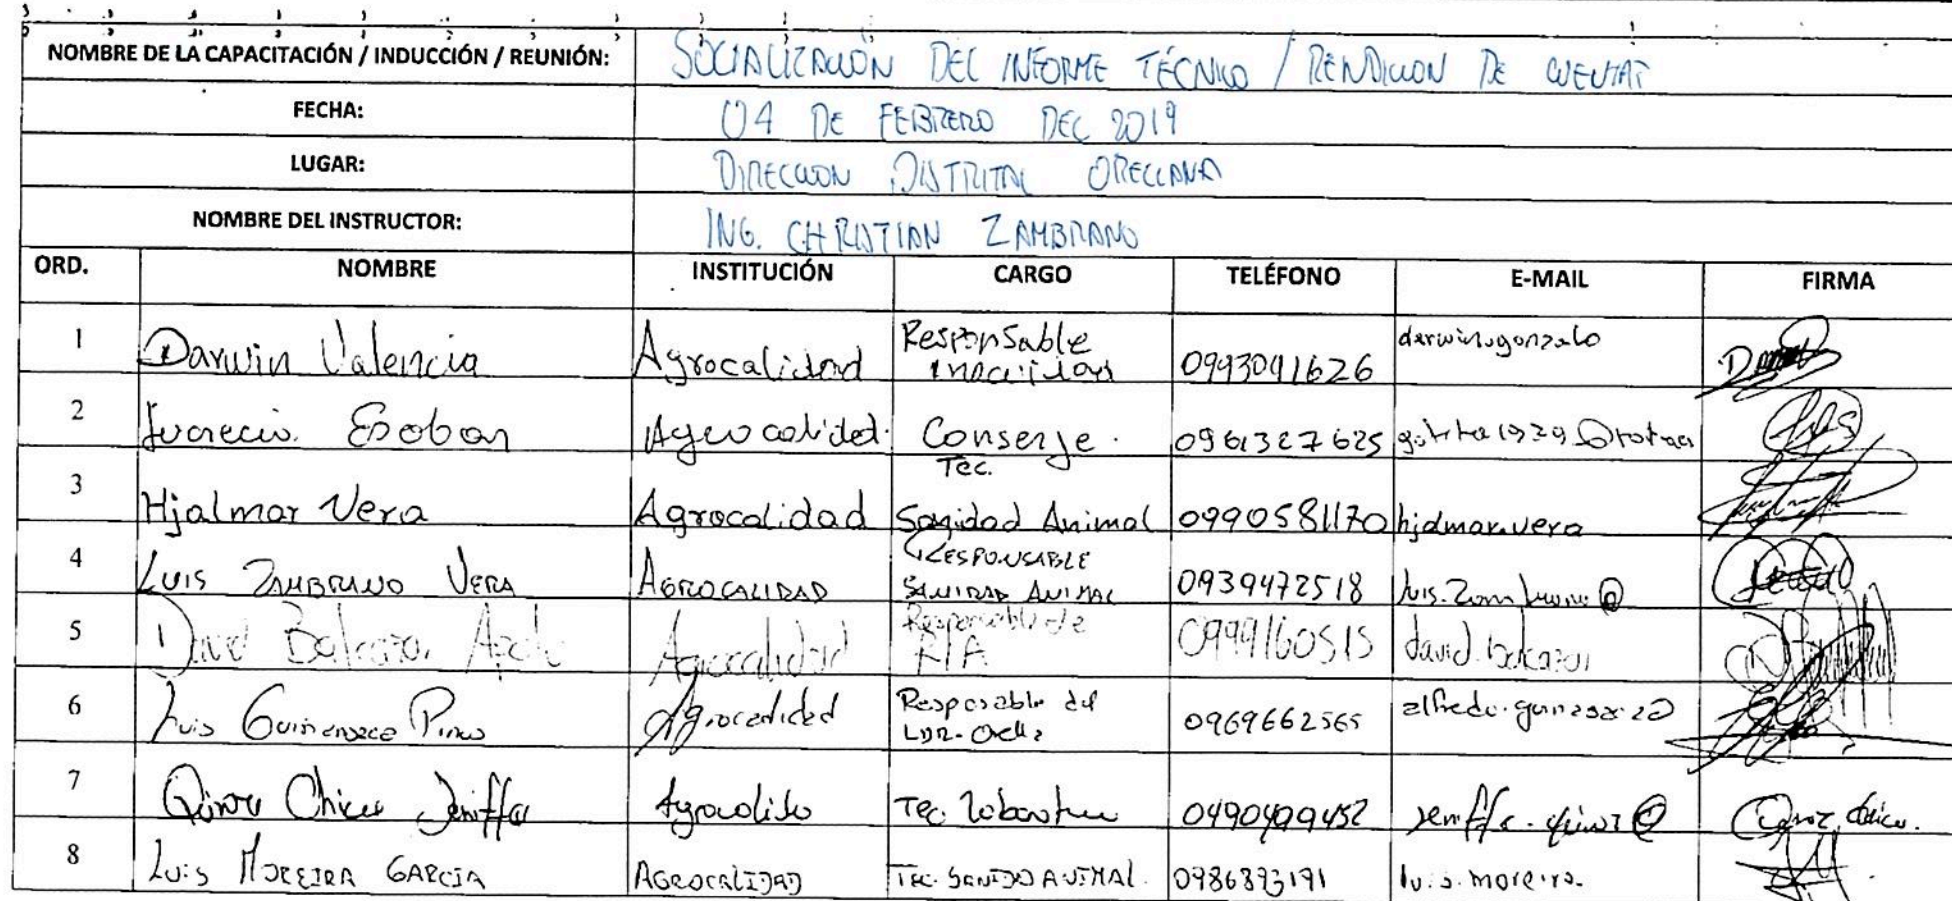 NOMBRE DE LA CAPACITACIÓN / INDUCCIÓN / REUNIÓN: SOCIALIZACION DEL INFORME TÉCNICO / RENDICION DE CUENTAS
FECHA: 04 DE FEBRERO DEL 2019
LUGAR: DIRECCION DISTRITAL ORELLANA
NOMBRE DEL INSTRUCTOR: ING. CHRISTIAN ZAMBRANO
ORD. NOMBRE INSTITUCIÓN CARGO TELÉFONO E-MAIL FIRMA
1 Darwin Valencia Agrocalidad Responsable 0993041626 darwin.gonzalo
2 Escobar Agrocalidad. Conserje. 0961327625
3 Hjalmar Vera Agrocalidad Tec. Sanidad Animal 0990581170 hjalmar.vera
4 LUIS ZAMBRANO VERA AGROCALIDAD RESPONSABLE SANIDAD ANIMAL 0939472518 luis.zambrano@
5 David Balcazar Agrocalidad Responsable de 0999160515 david.balcazar
6 Luis Agrocalidad Responsable del 0969662565
7 Chico Jeniffer Tec. 0490499452
8 LUIS MOREIRA GARCIA AGROCALIDAD TEC. SANIDAD ANIMAL. 0986893191 luis.moreira.